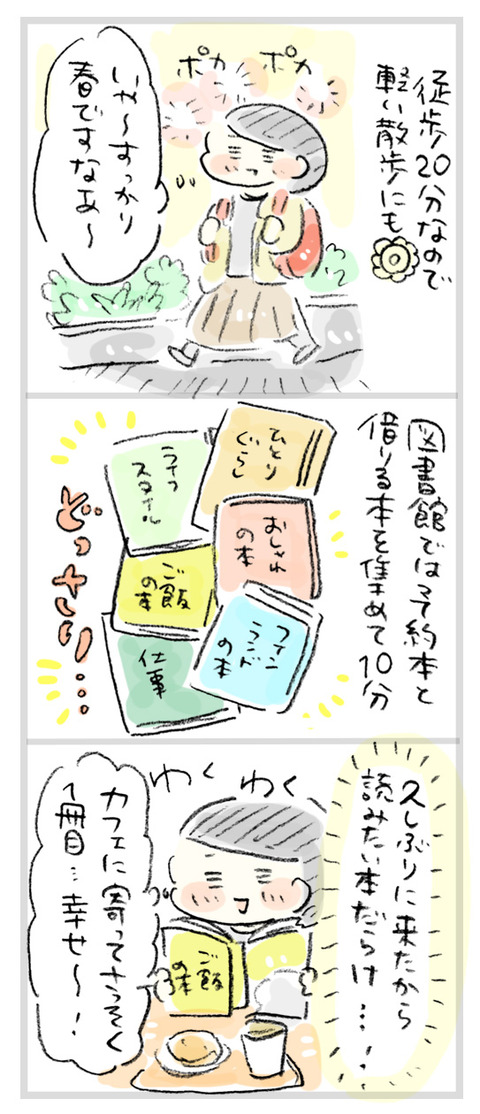 徒歩20分なので
軽い散歩にも
ポカ ポカ
いや〜すっかり
春ですなあ〜
図書館では予約本と
借りる本を集めて10分
ひとり
ぐらし
ライフ
スタイル
おしゃれ
の本
ご飯
の本
フィン
ランド
の本
仕事
どっさり…
久しぶりに来たから
読みたい本だらけ…!
わく わく
カフェに寄ってさっそく
1冊目…幸せ〜!
ご飯
の本